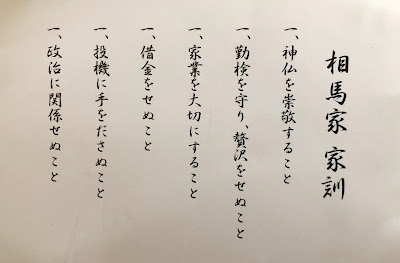 相馬家 家訓
一、神仏を崇敬すること
一、勤検を守り、贅沢をせぬこと
一、家業を大切にすること
一、借金をせぬこと
一、投機に手をださぬこと
一、政治に関係せぬこと